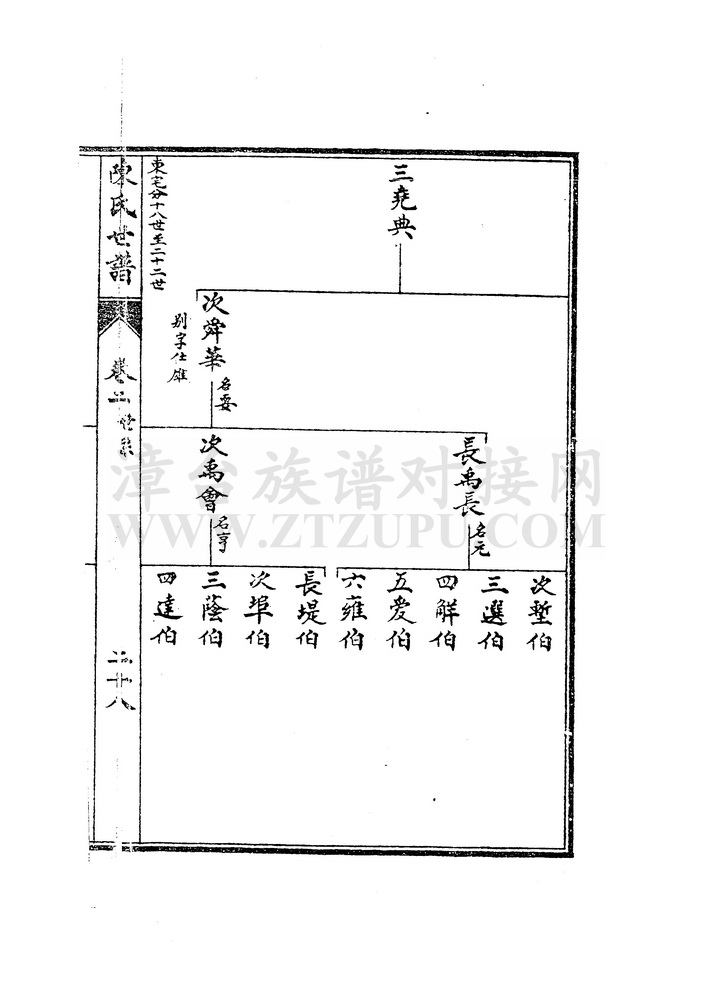 三堯典
次舜華
名要
別字仕雄
長禹長
名元
次禹會
名亨
次塹伯
三選伯
四解伯
五爱伯
六雍伯
長堤伯
次埠伯
三蔭伯
四達伯
東宅分十八世至二十二世
陳氏世譜
卷二
二廿八
漳台族谱对接网
WWW.ZTZUPU.COM